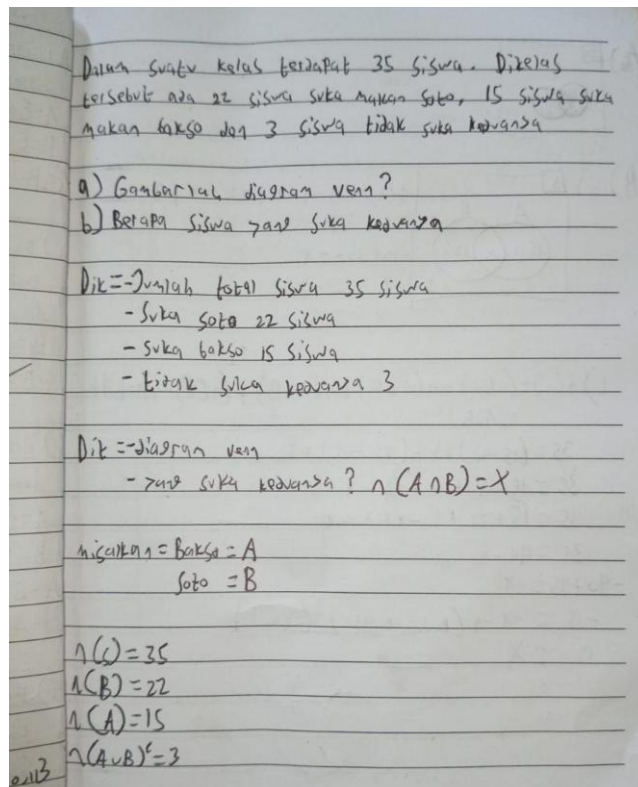 Dalam suatu kelas terdapat 35 siswa. Dikelas
tersebut ada 22 siswa suka makan soto, 15 siswa suka
makan bakso dan 3 siswa tidak suka keduanya
a) Gambarlah diagram venn?
b) Berapa siswa yang suka keduanya
Dik=-Jumlah total siswa 35 siswa
- Suka soto 22 siswa
- suka bakso 15 siswa
- tidak suka keduanya 3
Dit =-diagram venn
- yang suka keduanya? n (A∩B)=X
misalkan = Bakso = A
Soto = B
n(S)=35
n(B)=22
n(A)=15
n(A∪B)ᶜ=3